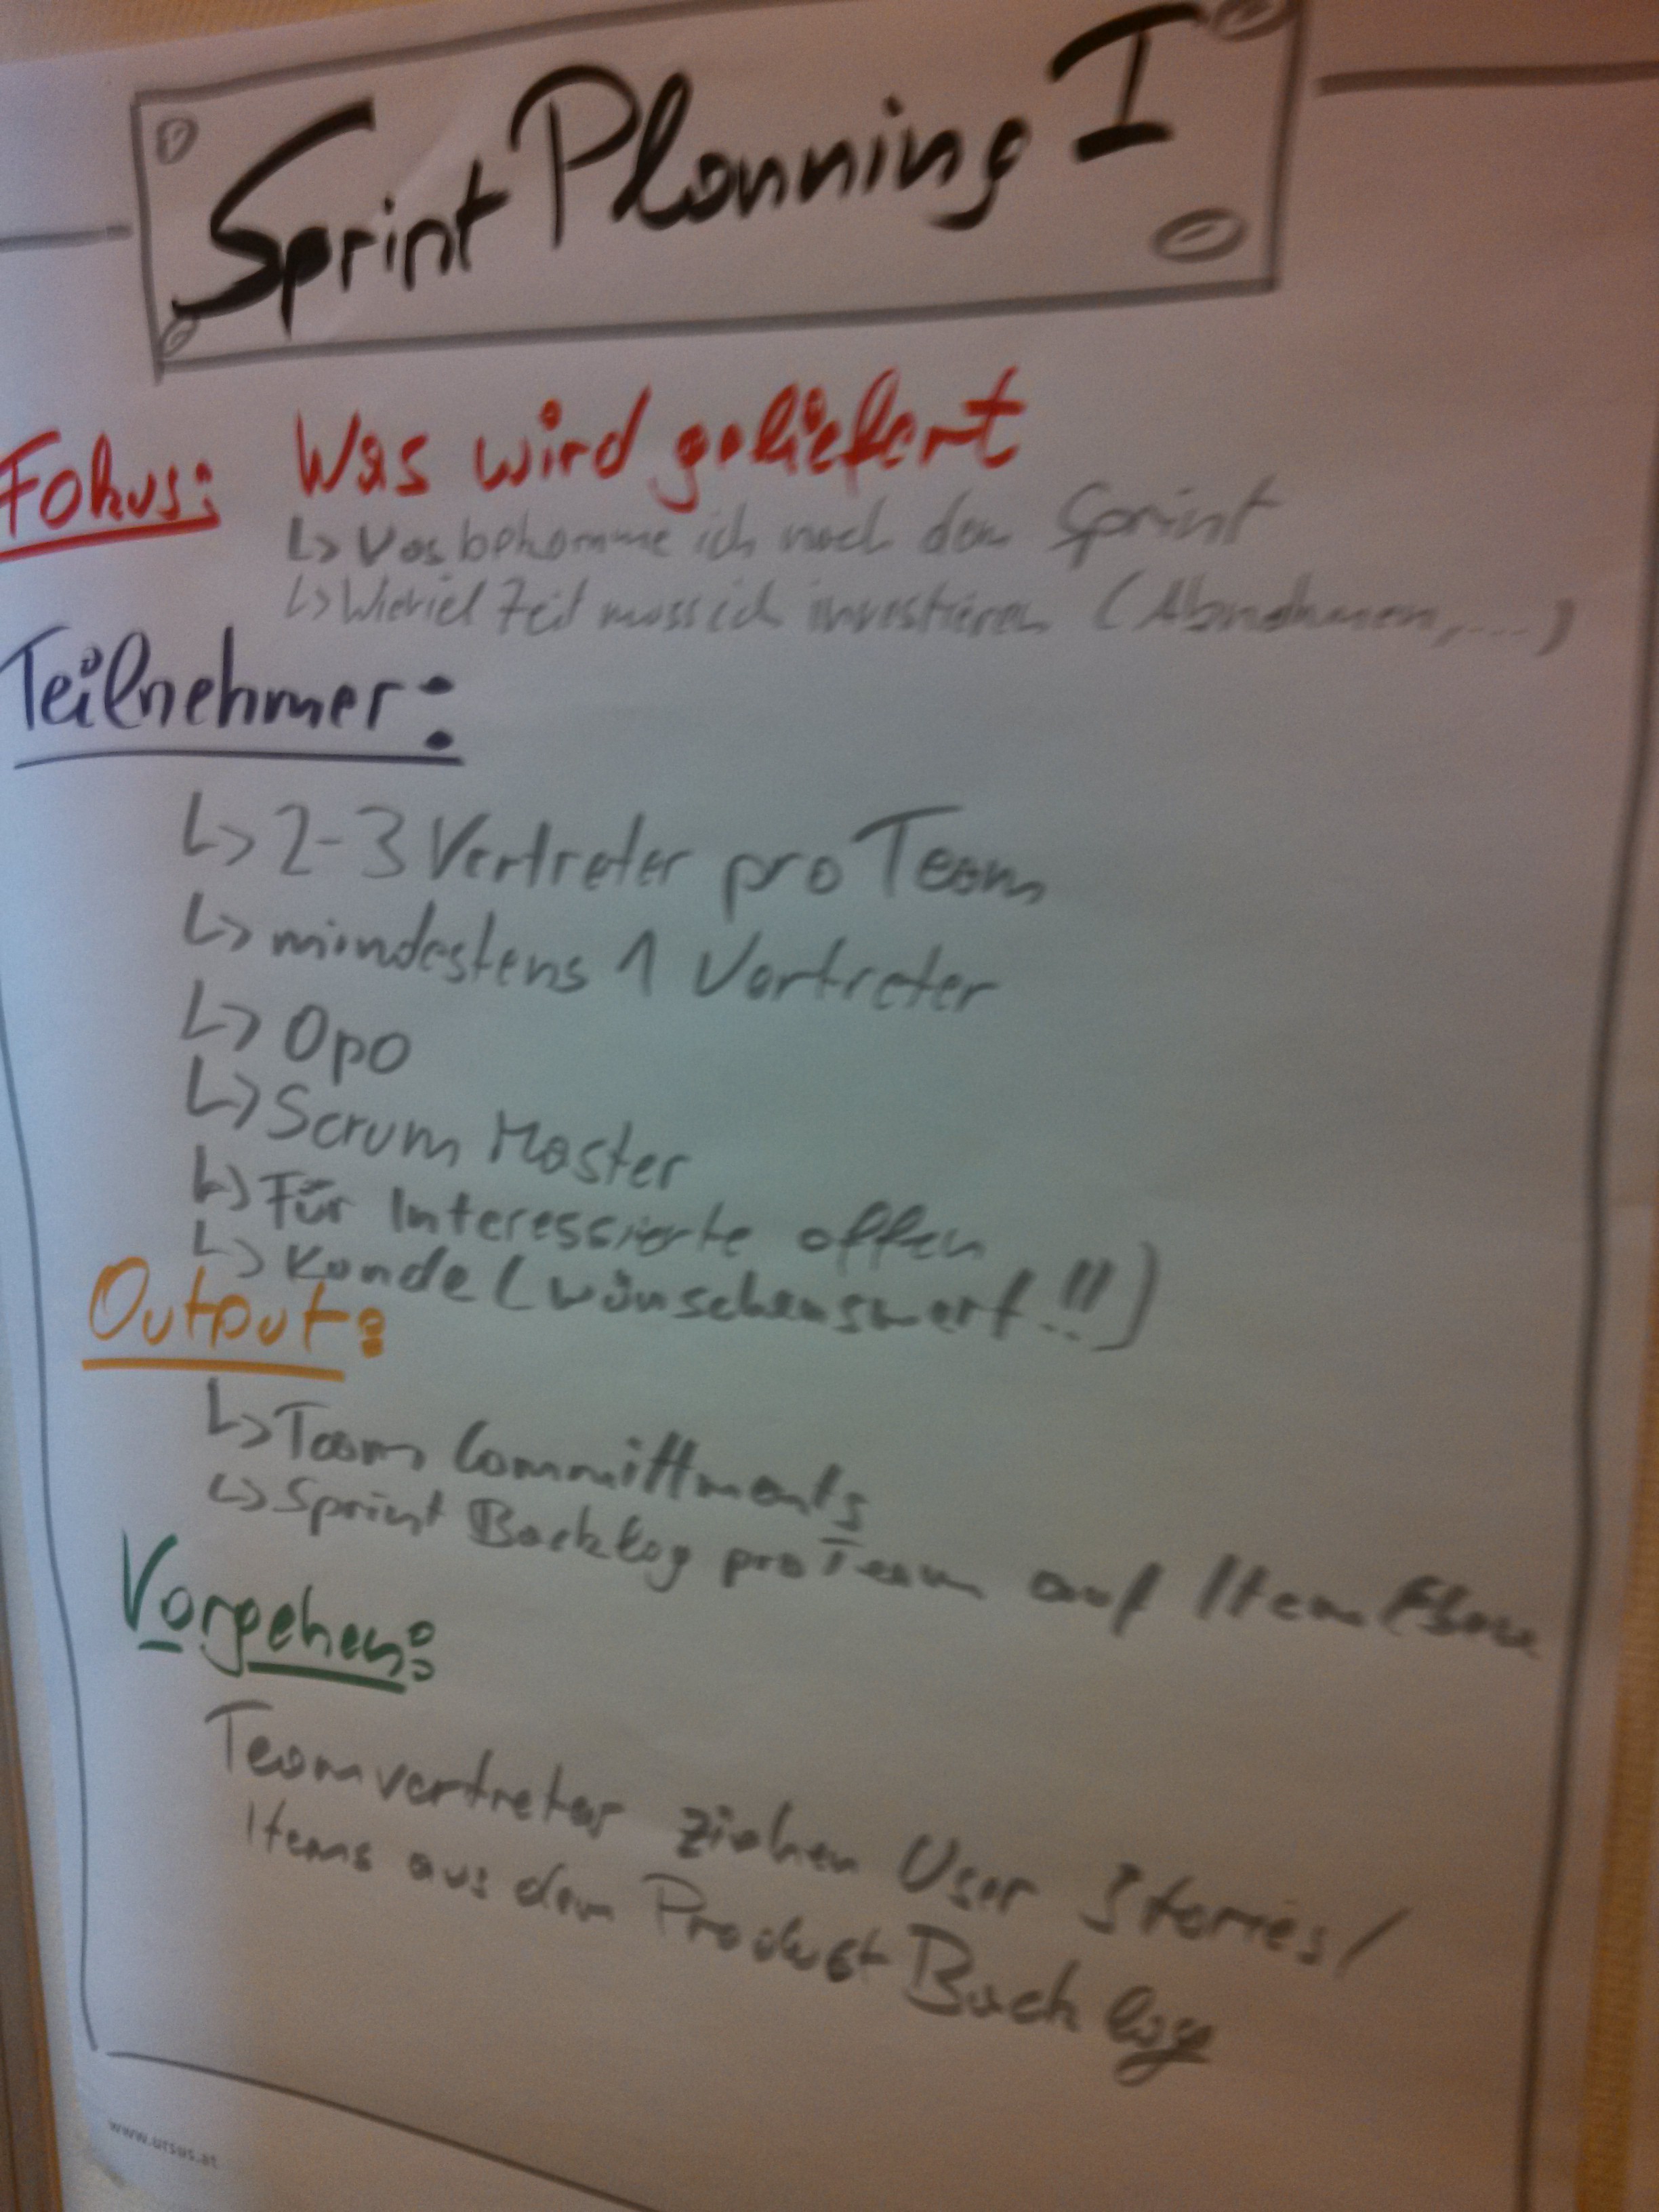 Sprint Planning I
Fokus: Was wird geliefert
↳ Was bekomme ich nach dem Sprint
↳ Wieviel Zeit muss ich investieren (Abnahmen, ....)
Teilnehmer:
↳ 2-3 Vertreter pro Team
↳ mindestens 1 Vertreter
↳ OPO
↳ Scrum Master
↳ Für Interessierte offen
↳ Kunde (wünschenswert!!)
Output:
↳ Team Committments
↳ Sprint Backlog pro Team auf Item Ebene
Vorgehen:
Teamvertreter ziehen User Stories/
Items aus dem Product Backlog
www.ursus.at